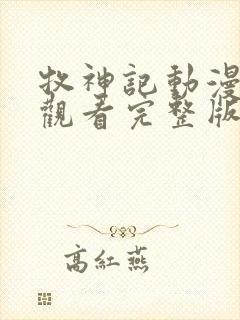 牧神記動漫
觀看完整版
高紅燕